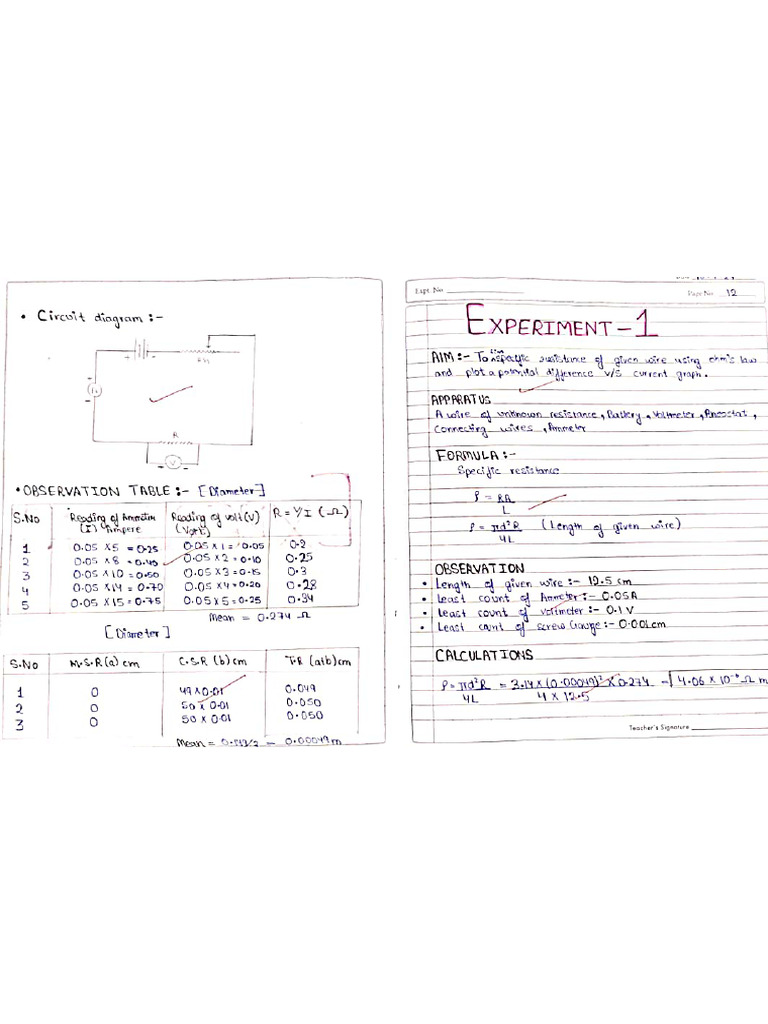 • Circuit diagram :-
R
V
• OBSERVATION TABLE :- [Diameter]
S.No | Reading of Ammeter (I) Ampere | Reading of volt (V) (Volt) | R = V/I (Ω)
1 | 0.05 x 5 = 0.25 | 0.05 x 1 = 0.05 | 0.2
2 | 0.05 x 8 = 0.40 | 0.05 x 2 = 0.10 | 0.25
3 | 0.05 x 10 = 0.50 | 0.05 x 3 = 0.15 | 0.3
4 | 0.05 x 14 = 0.70 | 0.05 x 4 = 0.20 | 0.28
5 | 0.05 x 15 = 0.75 | 0.05 x 5 = 0.25 | 0.34
Mean = 0.274 Ω
[Diameter]
S.No | M.S.R (a) cm | C.S.R (b) cm | T.R (a+b) cm
1 | 0 | 49 x 0.01 | 0.049
2 | 0 | 50 x 0.01 | 0.050
3 | 0 | 50 x 0.01 | 0.050
Mean = = 0.00049 m
Expt. No.
Page No. 12
EXPERIMENT - 1
AIM :- To specific resistance of given wire using ohm's law
and plot a potential difference v/s current graph.
APPARATUS
A wire of unknown resistance, Battery, Voltmeter, Rheostat,
Connecting wires, Ammeter
FORMULA :-
Specific resistance
ρ = RA/L
ρ = πd²R/4L (Length of given wire)
OBSERVATION
• Length of given wire :- 12.5 cm
• Least count of Ammeter :- 0.05A
• Least count of voltmeter :- 0.1 V
• Least count of screw Gauge :- 0.001cm
CALCULATIONS
ρ = πd²R/4L = 3.14 x (0.00049)² x 0.274/4 x 12.5 = 4.06 x 10 Ω m
Teacher's Signature